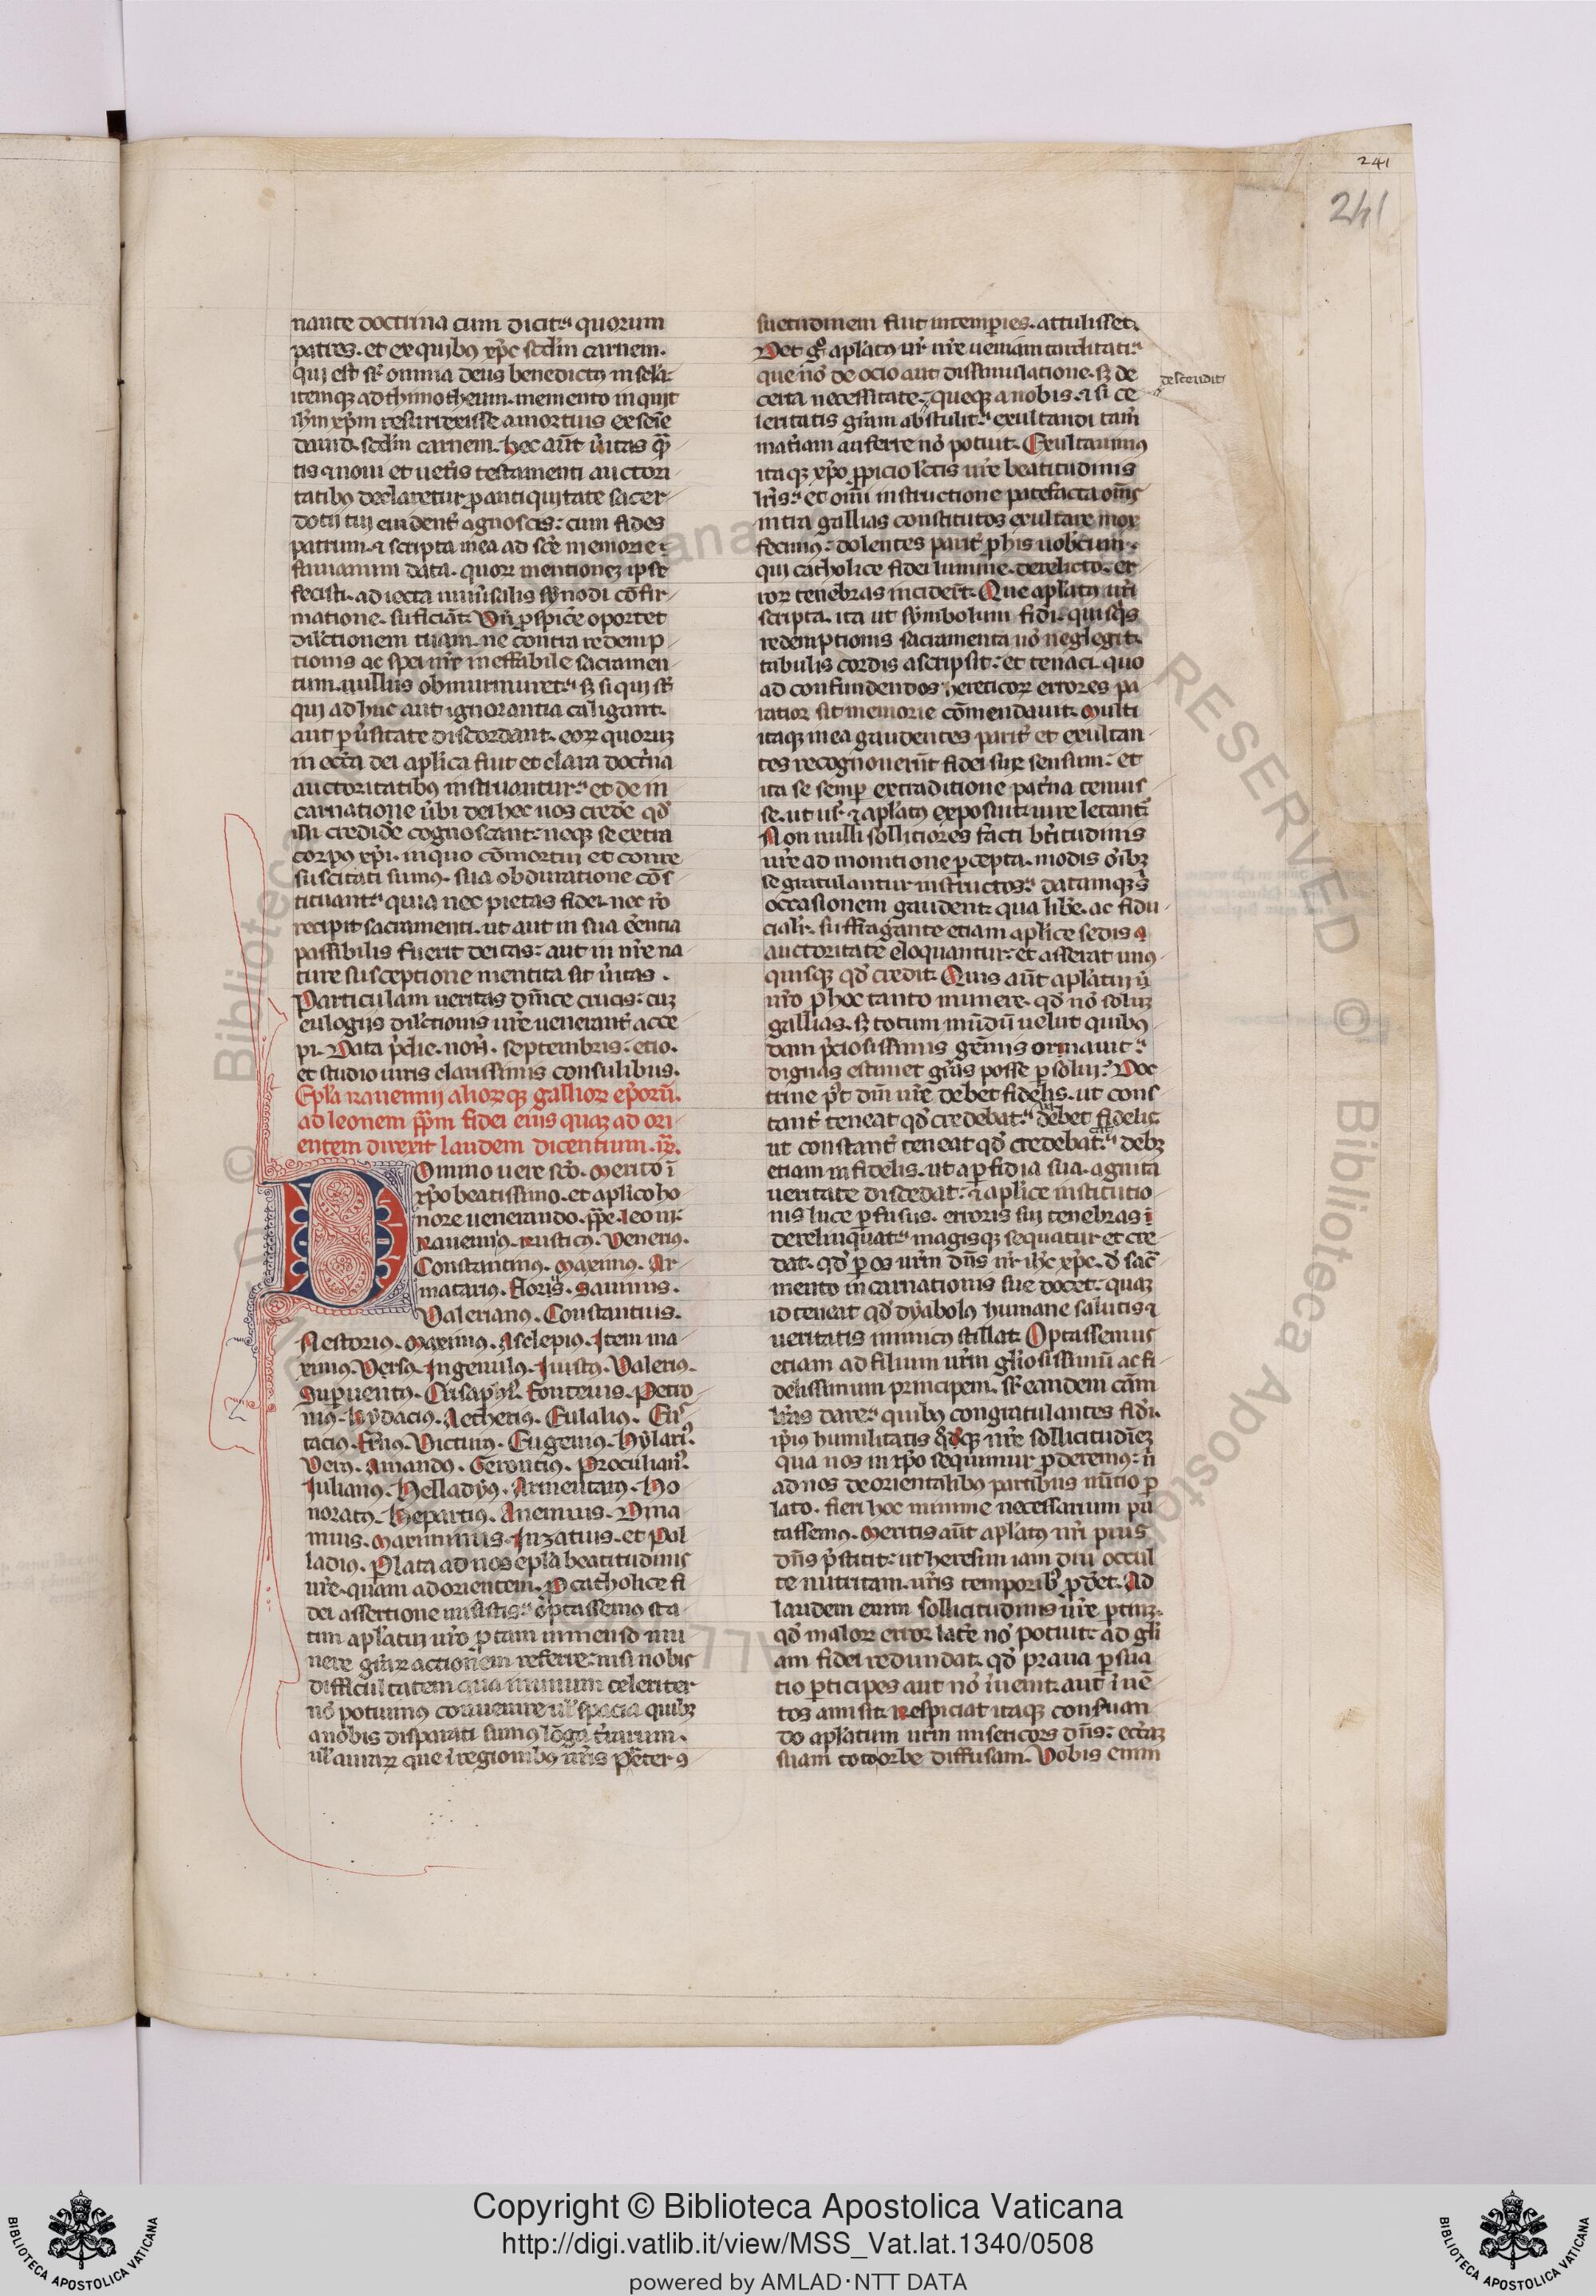 241
241
nante doctrina cum dicitᷣ quorum
patres. et ex quibꝰ xp̄c scd̄m carnem.
qui est sr̄ omnia deus benedictꝰ in scl̄a:
itemqꝫ ad thimotheum. memento inquit
ihm̄ xp̄m resurrexisse a mortuis ex seīe
dauid. scd̄m carnem. hec aūt ūitas q̄
tis ⁊ noui et uetīs testamenti auctori
tatibꝰ declaretur ꝓ antiquitate sacer
dotij tui euident̄ agnoscis: cum fides
patrum. ⁊ scripta mea ad sc̄e memorie
flauianum data. quoꝝ mentionez ipse
fecisti. adiecta uniūsalis synodi cōfir
matione. sufficiāt. Vn̄ ꝓspic̄e oportet
dil̄ctionem tuam. ne contra redemp
tionis ac spei nr̄e ineffabile sacramen
tum. nullus obmurmuretᷣ sꝫ si qui st̄
qui adhuc aut ignorantia caligant.
aut ꝑ ūsitate discordant. eoꝝ quoruꝫ
in ecc̄a dei apl̄ica fiut et clara doct̄na
auctoritatibꝰ instruantur et de in
carnatione ūbi dei hec nos cred̄e qd̄
illi credid̄e cognoscant: neqꝫ se extra
corpꝰ xp̄i. in quo cōmortui et conre
suscitati sumꝰ. sua obduratione cōs
tituantᷣ quia nec pietas fidei. nec rō
recipit sacramenti. ut aut in sua ēentia
passibilis fuerit deitas: aut in nr̄e na
ture susceptione mentita sit ūitas.
Particulam ueritas dn̄ice crucis: cuꝫ
eulogijs dil̄ctionis ur̄e uenerant̄ acce
pi. Data p̄die. non̄. septembris: etio.
et studio uiris clarissimis consulibus.
Epl̄a rauennij alioꝝqꝫ gallioꝝ ep̄orū.
ad leonem p̄pm fidei eius quaꝫ ad ori
entem direxit laudem dicentium.
Domino uere sc̄o. merito ī
xp̄o beatissimo. et apl̄ico ho
nore uenerando. p̄pe. leoni.
Rauenniꝰ. Rusticꝰ. Veneriꝰ.
Constantinꝰ. Maximꝰ. Ar
matariꝰ. floriꝰ. Sauinus.
Valerianꝰ. Constantius.
Nestoriꝰ. Maximꝰ. Asclepiꝰ. Item ma
ximꝰ. Versꝰ. Ingenuꝰ. Iustꝰ. Valeriꝰ.
Suꝑuentꝰ. Crisaphiꝰ. fonteius. Petro
niꝰ. Hydaciꝰ. Aetheriꝰ. Eulaliꝰ. Eus
taciꝰ. Victurꝰ. Eugeniꝰ. Hylariꝰ.
Verꝰ. Amandꝰ. Gerontiꝰ. Proculianꝰ.
Iulianꝰ. Helladyꝰ. Armentarꝰ. Ho
noratꝰ. Heparchiꝰ. Anemius. Dina
mius. Maximinus. Inzatius. et Pal
ladiꝰ. Perlata ad nos epl̄a beatitudinis
ur̄e. quam ad orientem. ꝓ catholice fi
dei assertione misistis: optassemꝰ sta
tim apl̄atui uro ꝓ tam immenso mu
nere gr̄aꝝ actionem referre: nisi nobis
difficultatem qua nimium celeriter
nō potuimꝰ conuenire ul̄ spacia quibꝫ
a nobis disparati sumꝰ lōga t̄rarum.
ul̄ auraꝝ que ī regionibꝰ nr̄is p̄ter ꝯ
suetudinem fiut intemꝑies. attulisset.
Det gͦ apl̄atꝰ ur̄ nr̄e ueniam tarditatiᷣ
que nō de ocio aut dissimulatione. sꝫ de
descendit
certa necessitate. queqꝫ a nobis. ⁊ si ce
leritatis gr̄am abstulit: exultandi tam̄
mat̄iam auferre nō potuit. Exultauimꝰ
itaqꝫ xp̄o ꝓpicio lc̄tis ur̄e beatitudinis
lr̄is: et oīni instructione patefacta oīns
intra gallias constitutos exultare mox
fecimꝰ: dolentes parit̄ ꝓ his uobcum.
qui catholice fidei lumine. derelicto. er
roꝝ tenebras inciderīt. Que apl̄atꝰ ur̄i
scripta. ita ut symbolum fidei. quisqͥs
redemptionis sacramenta nō neglegit.
tabulis cordis ascripsit: et tenaci. quo
ad confundendos hereticoꝝ errores pa
ratior sit memorie cōmendauit. Multi
itaqꝫ in ea gaudentes parit̄ et exultan
tes recognouerūt fidei sue sensum: et
ita se semꝑ ex traditione pat̄na tenuis
se. ut ur̄ ⁊ apl̄atꝰ exposuit iure letant̄.
Non nulli sollicitiores facti bt̄itudinis
ur̄e admonitione ꝑcepta. modis oībꝫ
se gratulantur instructos: datamqꝫ sͥ
occasionem gaudent. qua lib̄e. ac fidu
cialr̄. suffragante etiam apl̄ice sedis
auctoritate eloquantur: et asserat unꝰ
quisqꝫ qd̄ credit. Quis aūt apl̄atui ū
nr̄o ꝓ hoc tanto munere. qd̄ nō soluꝫ
gallias. sꝫ totum mūdū uelut quibꝰ
dam p̄ciosissimis gēmis ornauit.
dignas estimet gr̄as posse ꝑsolui: Doc
trine pꝰt dm̄ ur̄e debet fidelis. ut cons
tant̄ teneat qd̄ credebat. debet fidelis
ut constant̄ teneat qd̄ credebat. debꝫ
etiam infidelis. ut a ꝑfidia sua. agnita
ueritate discedat: ⁊ apl̄ice institutio
nis luce ꝑfusus. erroris sui tenebras ī
derelinquat. magisqꝫ sequatur et cre
dat. qd̄ ꝑ os ur̄m dn̄s nr̄ ih̄c xp̄c. d̄ sac̄
mento incarnationis sue docet. quaꝫ
id teneat qd̄ dyabolꝰ humane salutis ⁊
ueritatis inimicꝰ stillat. Optassemus
etiam ad filium ur̄m gl̄iosissimū ac fi
delissimum principem. sr̄ eandem cām
lr̄as dare: quibꝰ congratulantes fidei.
ip̄ius humilitatis qͦqꝫ nr̄e sollicitudīeꝫ
qua nos in xp̄o sequimur ꝓderemꝰ: n̄
ad nos de orientalibꝰ partibus nūtio ꝑ
lato. fieri hoc minime necessarium pu
tassemꝰ. Meritis aūt apl̄atꝰ ur̄i prius
dn̄s p̄stitit: ut heresim iam diu occul
te nutritam. ur̄is temporibꝰ ꝓdet. Ad
laudem enim sollicitudinis ur̄e ꝑtinꝫ.
qd̄ maloꝝ error lat̄e nō potuit: ad gl̄i
am fidei redundat. qd̄ praua ꝑsua
sio ꝑticipes aut nō īuenit. aut īuē
tos amisit. Respiciat itaqꝫ consuan
do apl̄atum ur̄m misericors dn̄s: ecc̄aꝫ
suam toto orbe diffusam. Vobis enim
Copyright © Biblioteca Apostolica Vaticana
http://digi.vatlib.it/view/MSS_Vat.lat.1340/0508
powered by AMLAD·NTT DATA
BIBLIOTECA APOSTOLICA VATICANA
BIBLIOTECA APOSTOLICA VATICANA